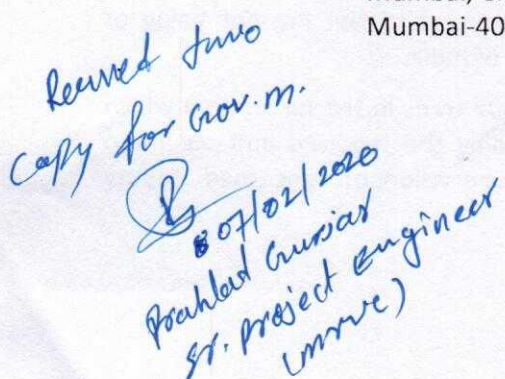 Mumbai-40
Received two
copy for Gov. m.
07/02/2020
Prahlad Gurjar
Sr. Project Engineer